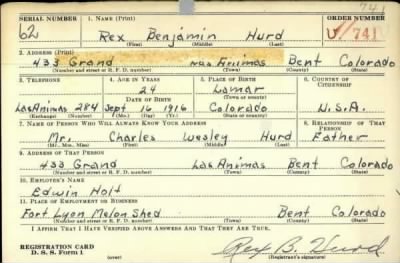 741
SERIAL NUMBER 1. NAME (Print) ORDER NUMBER
62 Rex Benjamin Hurd U 741
(First) (Middle) (Last)
2. ADDRESS (Print)
433 Grand Las Animas Bent Colorado
(Number and street or R. F. D. number) (Town) (County) (State)
3. TELEPHONE 4. AGE IN YEARS 5. PLACE OF BIRTH 6. COUNTRY OF CITIZENSHIP
24 Lamar
DATE OF BIRTH (Town or county)
Las Animas 284 Sept 16 1916 Colorado U.S.A.
(Exchange) (Number) (Mo.) (Day) (Yr.) (State or country)
7. NAME OF PERSON WHO WILL ALWAYS KNOW YOUR ADDRESS 8. RELATIONSHIP OF THAT PERSON
Mr. Charles Wesley Hurd Father
(Mr., Mrs., Miss) (First) (Middle) (Last)
9. ADDRESS OF THAT PERSON
433 Grand Las Animas Bent Colorado
(Number and street or R. F. D. number) (Town) (County) (State)
10. EMPLOYER'S NAME
Edwin Holt
11. PLACE OF EMPLOYMENT OR BUSINESS
Fort Lyon Melon Shed Bent Colorado
(Number and street or R. F. D. number) (Town) (County) (State)
I AFFIRM THAT I HAVE VERIFIED ABOVE ANSWERS AND THAT THEY ARE TRUE.
REGISTRATION CARD
D. S. S. Form 1 (over) Rex B. Hurd
(Registrant's signature)